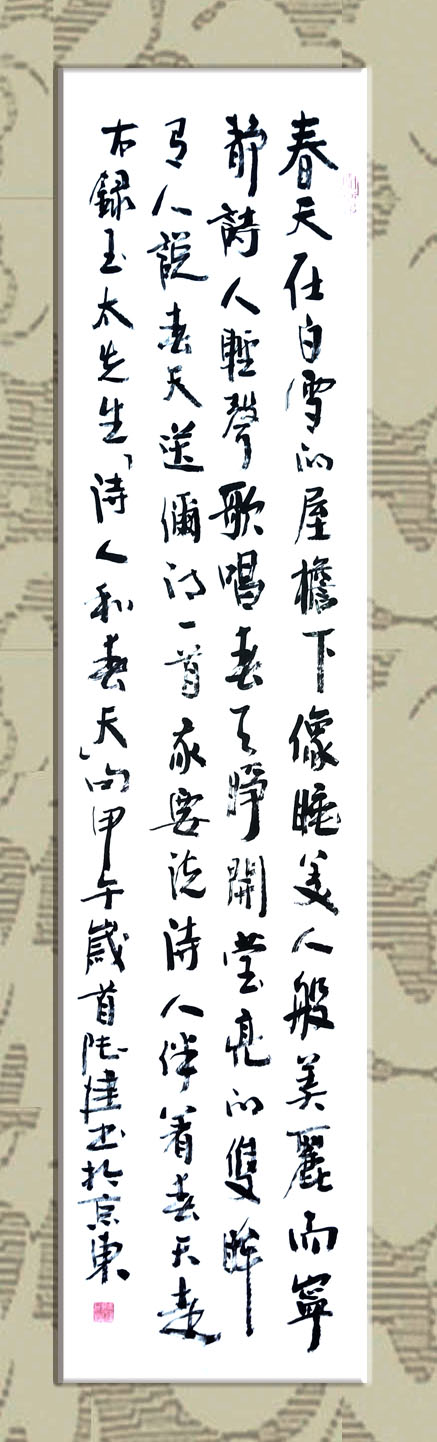 春天在白雪的屋檐下像睡美人般美麗而寧
静詩人輕聲歌唱春天睁開瑩亮的雙眸
有人說春天送儞詩一首我要說詩人伴着春天走
右録玉太先生「詩人和春天」句甲午歲首陸建書於京東